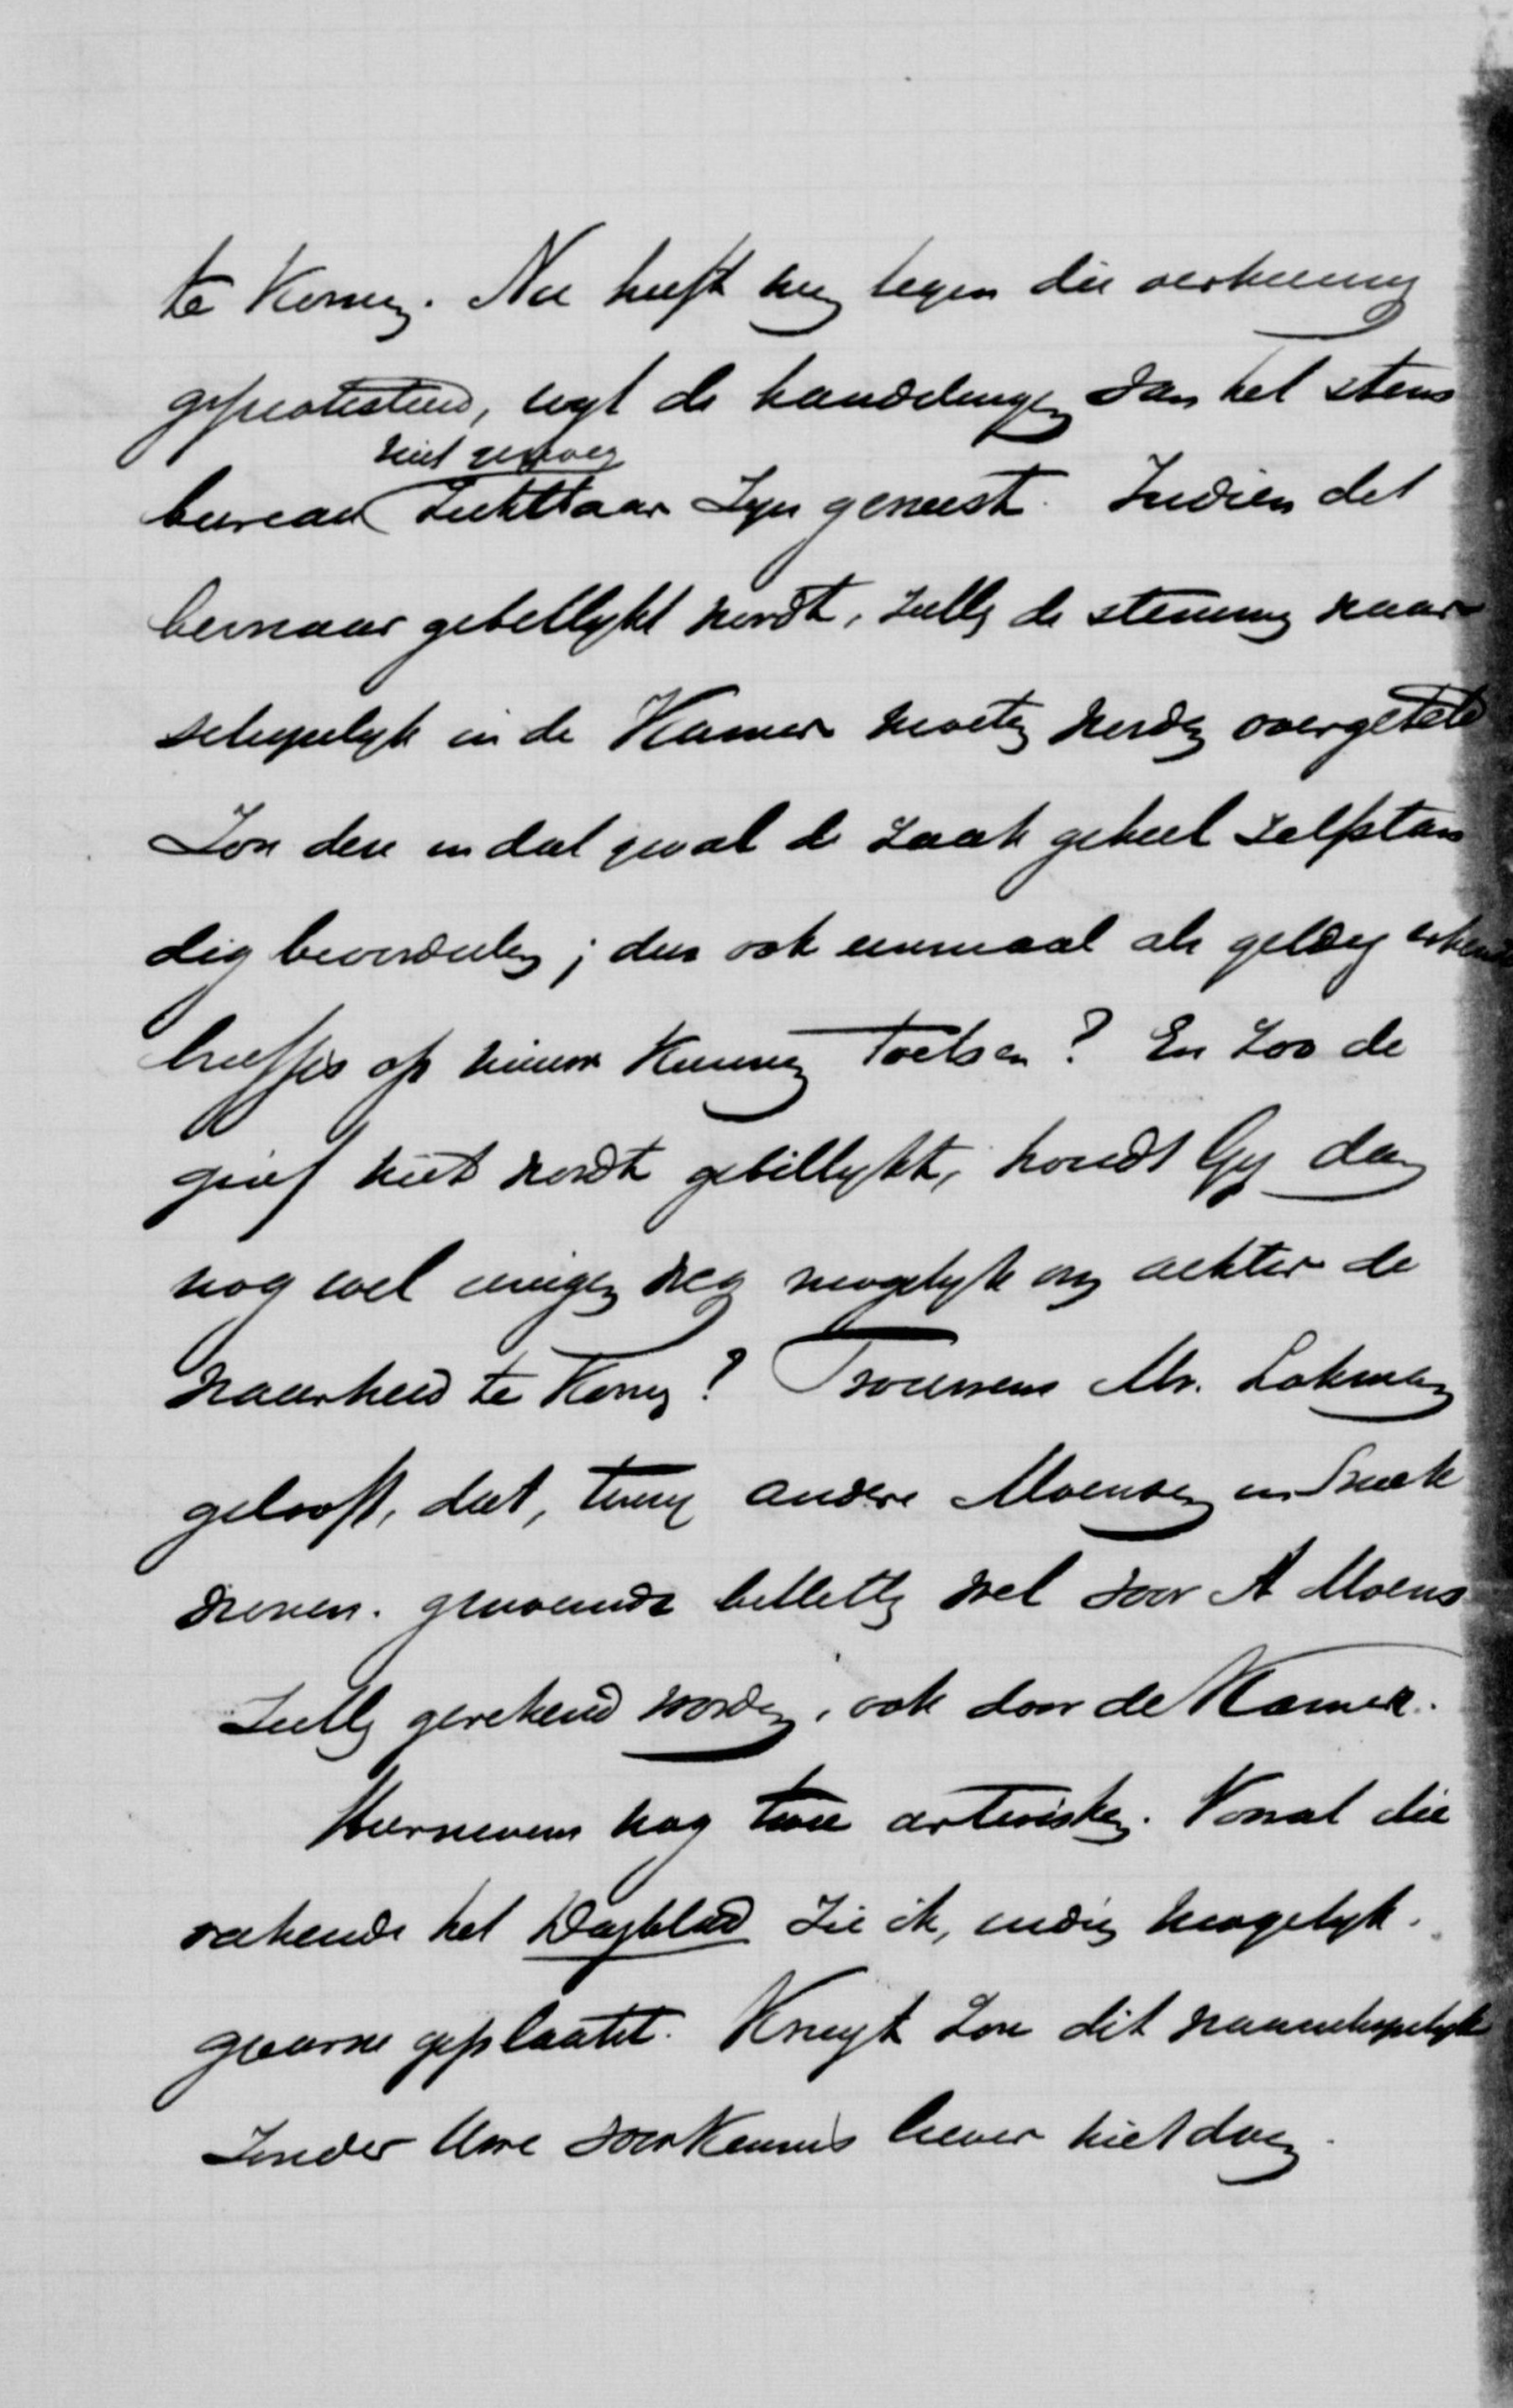 te komen. Nu heeft men tegen die verkiezing
geprotesteerd, wyl de handelingen van het stem
niet genoeg
bureau zichtbaar zyn geweest. Indien dit
bezwaar gebillykt wordt, zullen de stemming waar
schynlyk in de Kamer moeten worden overgeteld
Zou deze in dat geval de zaak geheel zelfstan
dig beoordeelen; dus ook eenmaal als geldig erkende
briefjes op nieuw kunnen toetsen? En zoo de
grief niet wordt gebillykt, houdt Gy dan
nog wel eenigen weg mogelyk om achter de
waarheid te komen? Trouwens Mr. Lohman
gelooft, dat, tenzy andere Moensen in Sneek
wonen. genoemde billetten wel voor A Moens
zullen gerekend worden, ook door de Kamer.
Hiernevens nog twee asterisken. Vooral die
rakende het Dagblad zie ik, indien mogelyk.
gaarne geplaatst. Kruyt zou dit waarschynlyk
zonder Uwe voorkennis liever niet doen.